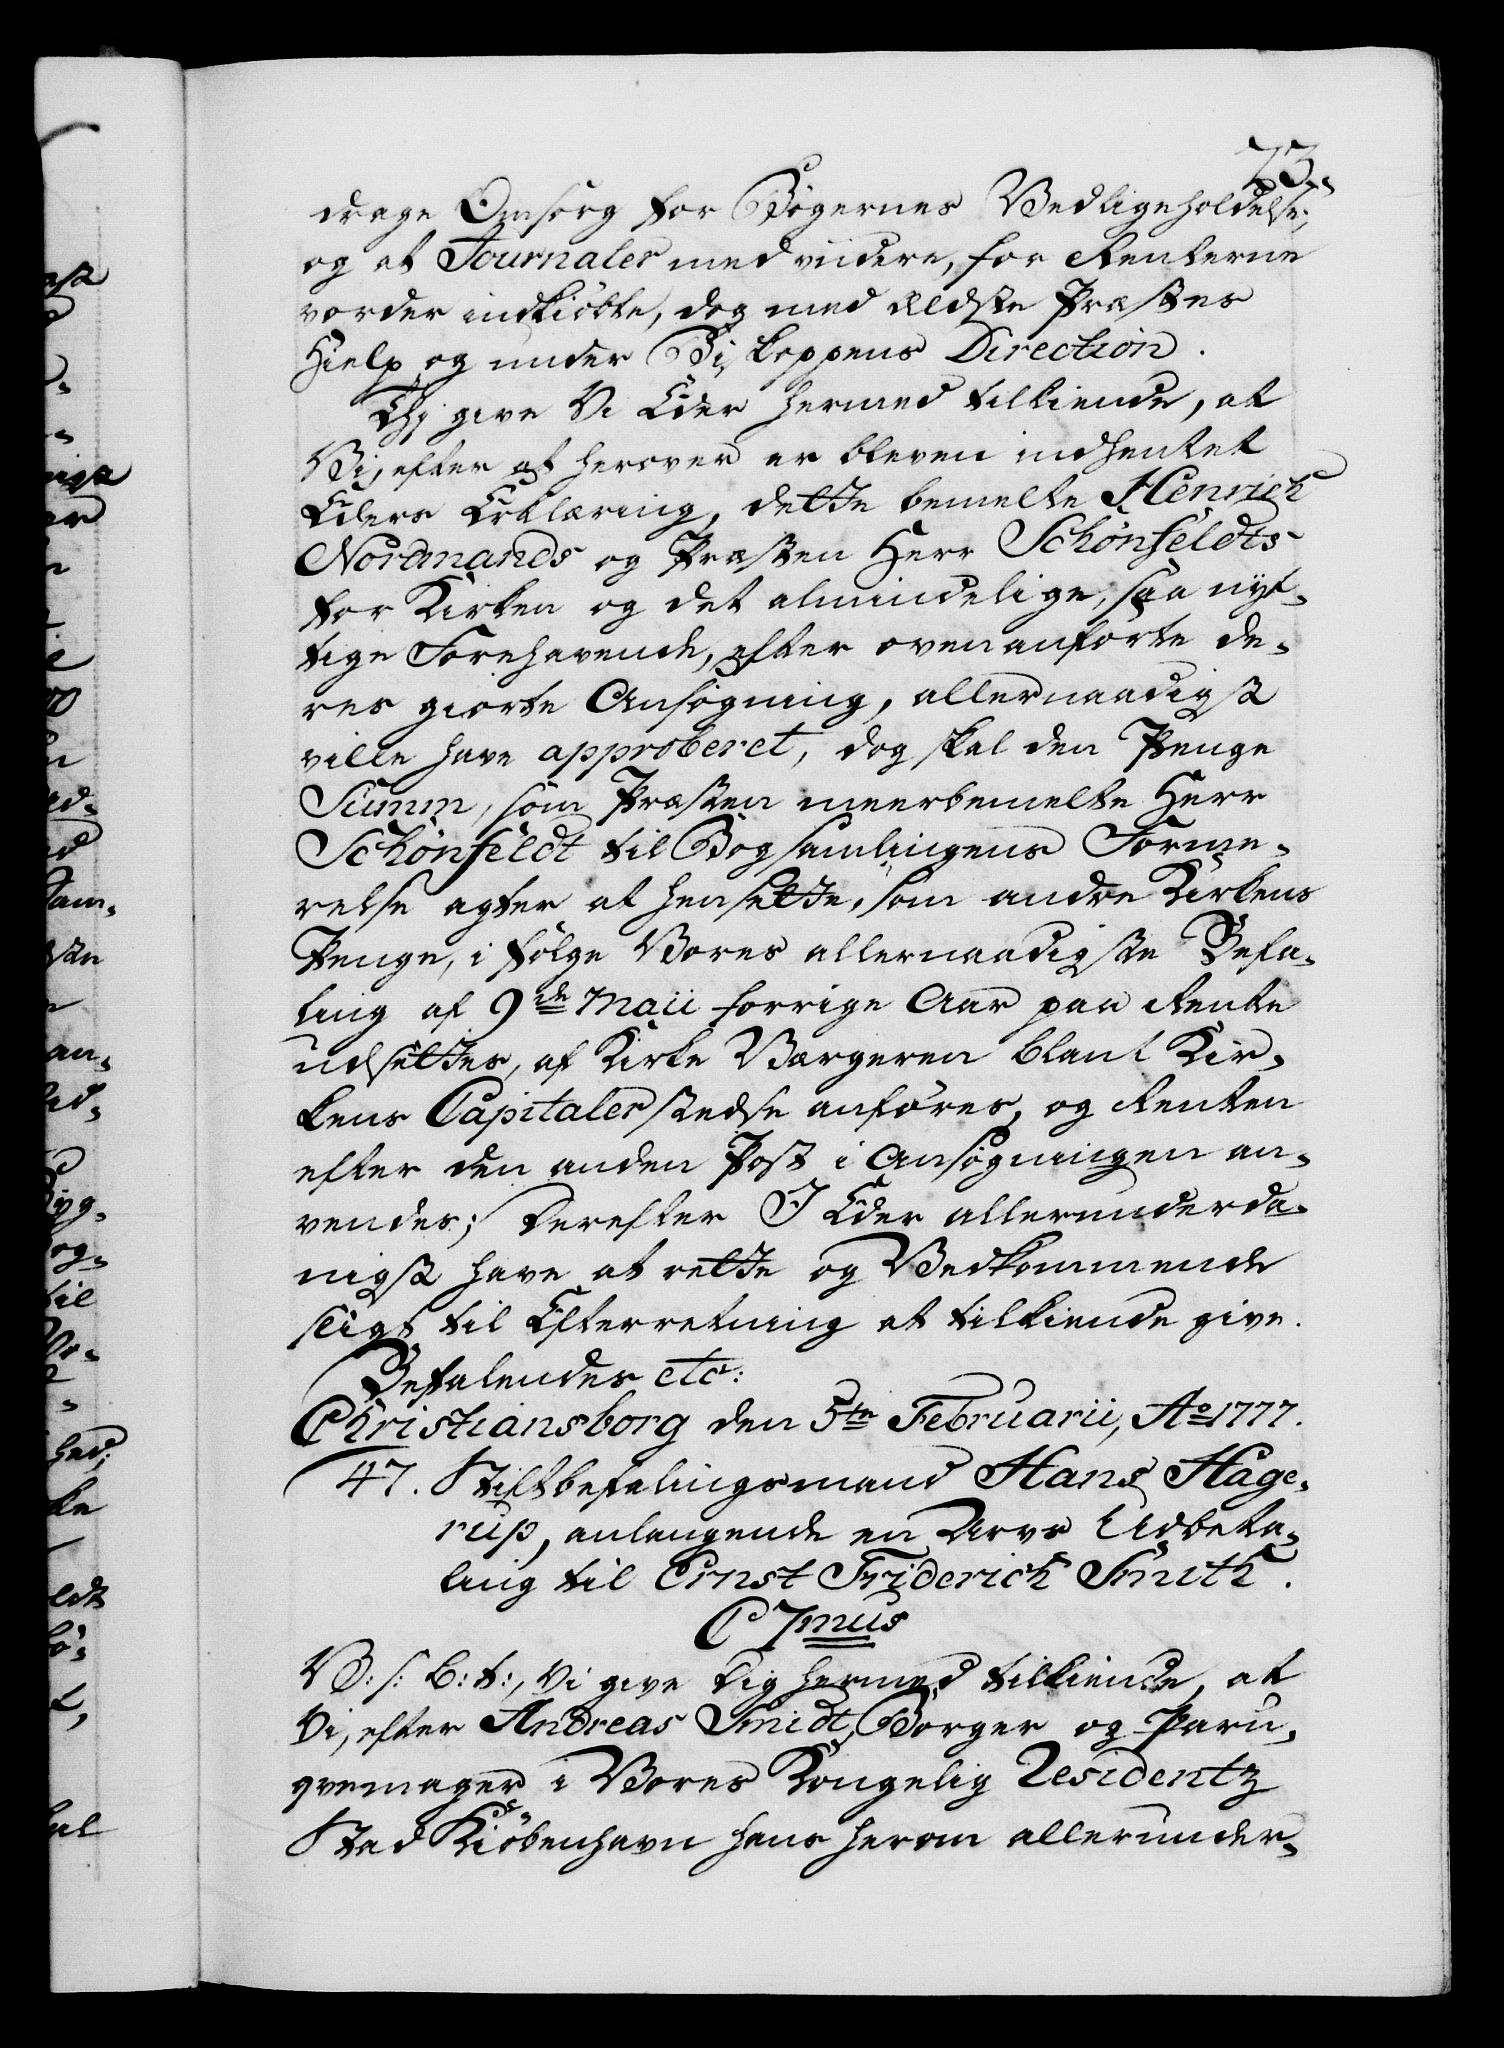 73.
drage Omsorg for Bøgernes Vedligeholdelse,
og at Journaler med viidere, for Renterne
vorder indkiöbte, dog med ældste Præstes
Hielp og under Biskoppens Direction.
Thj give Vi Eder hermed tilkiende, at
Vi, efter at herover er bleven indhentet
Eders Erklæring, dette bemelte Henrich
Nordmands og Præsten Herr Schönfeldts
for Kirken og det almindelige, saa nyt-
tige Forehavende, efter ovenanførte de-
res giorte Ansøgning, allernaadigst
ville have approberet, dog skal den Penge
Summ, som Præsten meerbemelte Herr
Schönfeldt til Bogsamlingens Forme-
relse agter at hensætte, som andre Kirkens
Penge, i følge Vores allernaadigste Befa-
ling af 9de Maii forrige Aar paa Rente
udsættes, af Kirke Værgeren blant Kir-
kens Capitaler stedse anføres, og Renten
efter den anden Post i Ansøgningen an-
vendes; Derefter I Eder allerunderda-
nigst have at rette og Vedkommende
sligt til Efterretning at tilkiende give.
Befalendes etc:
Christiansborg den 5te Februarii, Ao 1777.
47. Stiftbefalingsmand Hans Hage-
rup, anlangende en Arvs Udbeta-
ling til Ernst Friderich Smith.
C 7mus
V: s: b: t:, Vi give Dig hermed tilkiende, at
Vi, efter Andreas Smidt, Borger og Paru-
qvemager i Vores Kongelig Residentz
Stad Kiöbenhavn hans herom allerunder-